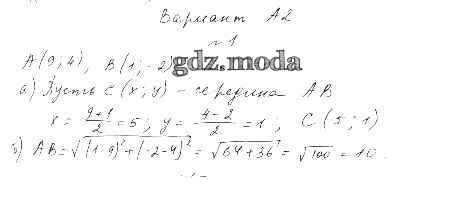 Вариант А2
№1
A(9;4), B(1;-2)
gdz.moda
а) Пусть C(x;y) - середина AB
x = 9+1/2 = 5; y = 4-2/2 = 1; C(5;1)
б) AB = √(1-9)²+(-2-4)² = √64+36 = √100 = 10.